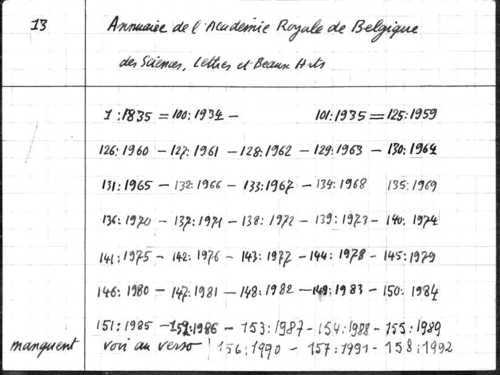 13 Annuaire de l'Academie Royale de Belgique
des Sciences, Lettres et Beaux Arts
1:1835 = 100:1934 – 101:1935 = 125:1959
126:1960 – 127:1961 – 128:1962 – 129:1963 – 130:1964
131:1965 – 132:1966 – 133:1967 – 134:1968 135:1969
136:1970 – 137:1971 – 138:1972 – 139:1973 – 140:1974
141:1975 – 142:1976 – 143:1977 – 144:1978 – 145:1979
146:1980 – 147:1981 – 148:1982 – 149:1983 – 150:1984
151:1985 – 152:1986 – 153:1987 – 154:1988 – 155:1989
manquent voir au verso 156:1990 – 157:1991 – 158:1992